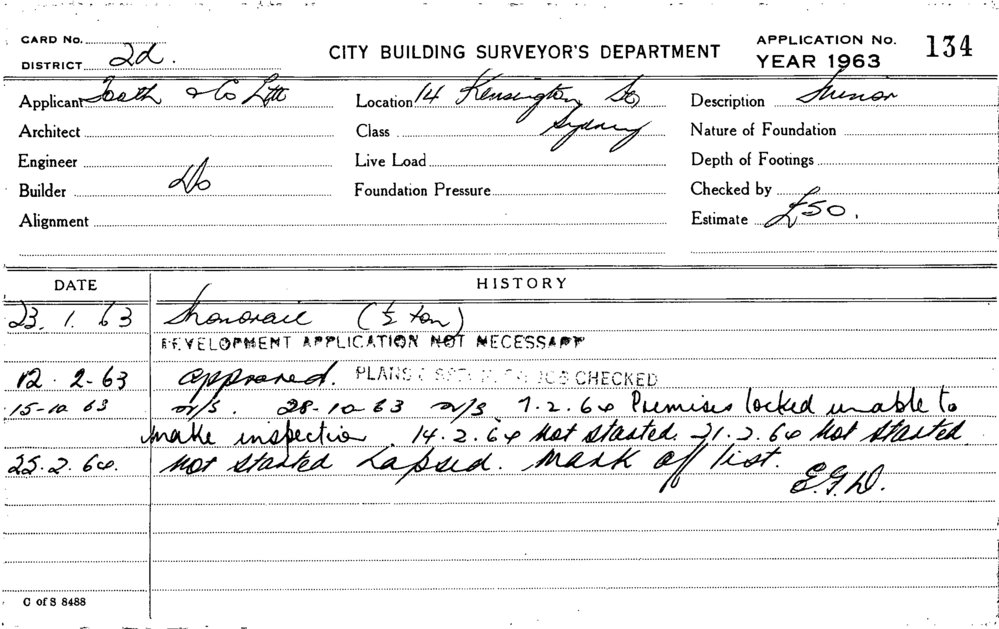 CARD No.
DISTRICT 2d.
CITY BUILDING SURVEYOR'S DEPARTMENT
APPLICATION No. 134
YEAR 1963
Applicant Tooth & Co Ltd
Location 14 Kensington St,
Sydney
Description Minor
Architect
Class
Nature of Foundation
Engineer
Live Load
Depth of Footings
Builder Do
Foundation Pressure
Checked by
Alignment
Estimate £50.
DATE
HISTORY
23. 1. 63 Monorail (½ ton)
DEVELOPMENT APPLICATION NOT NECESSARY
12. 2-63 approved. PLANS JOB CHECKED
15-10 63 n/s. 28-10-63 n/s 7.2.64 Premises locked unable to
make inspection. 14.2.64 Not started. 21.2.64 Not started
25.2.64. Not started Lapsed. Mark off list.
E.G.D.
C of S 8488